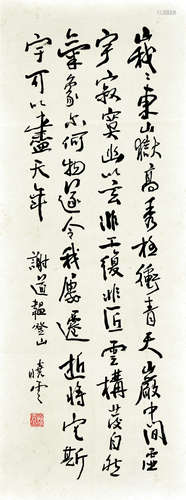 峩々東嶽高秀極衝青天巖中間虛
宇寂寞幽以玄非工復非匠雲構發自然
氣象尒何物遂令我屢遷逝將宅斯
宇可以盡天年
謝道韞登山 曉雲